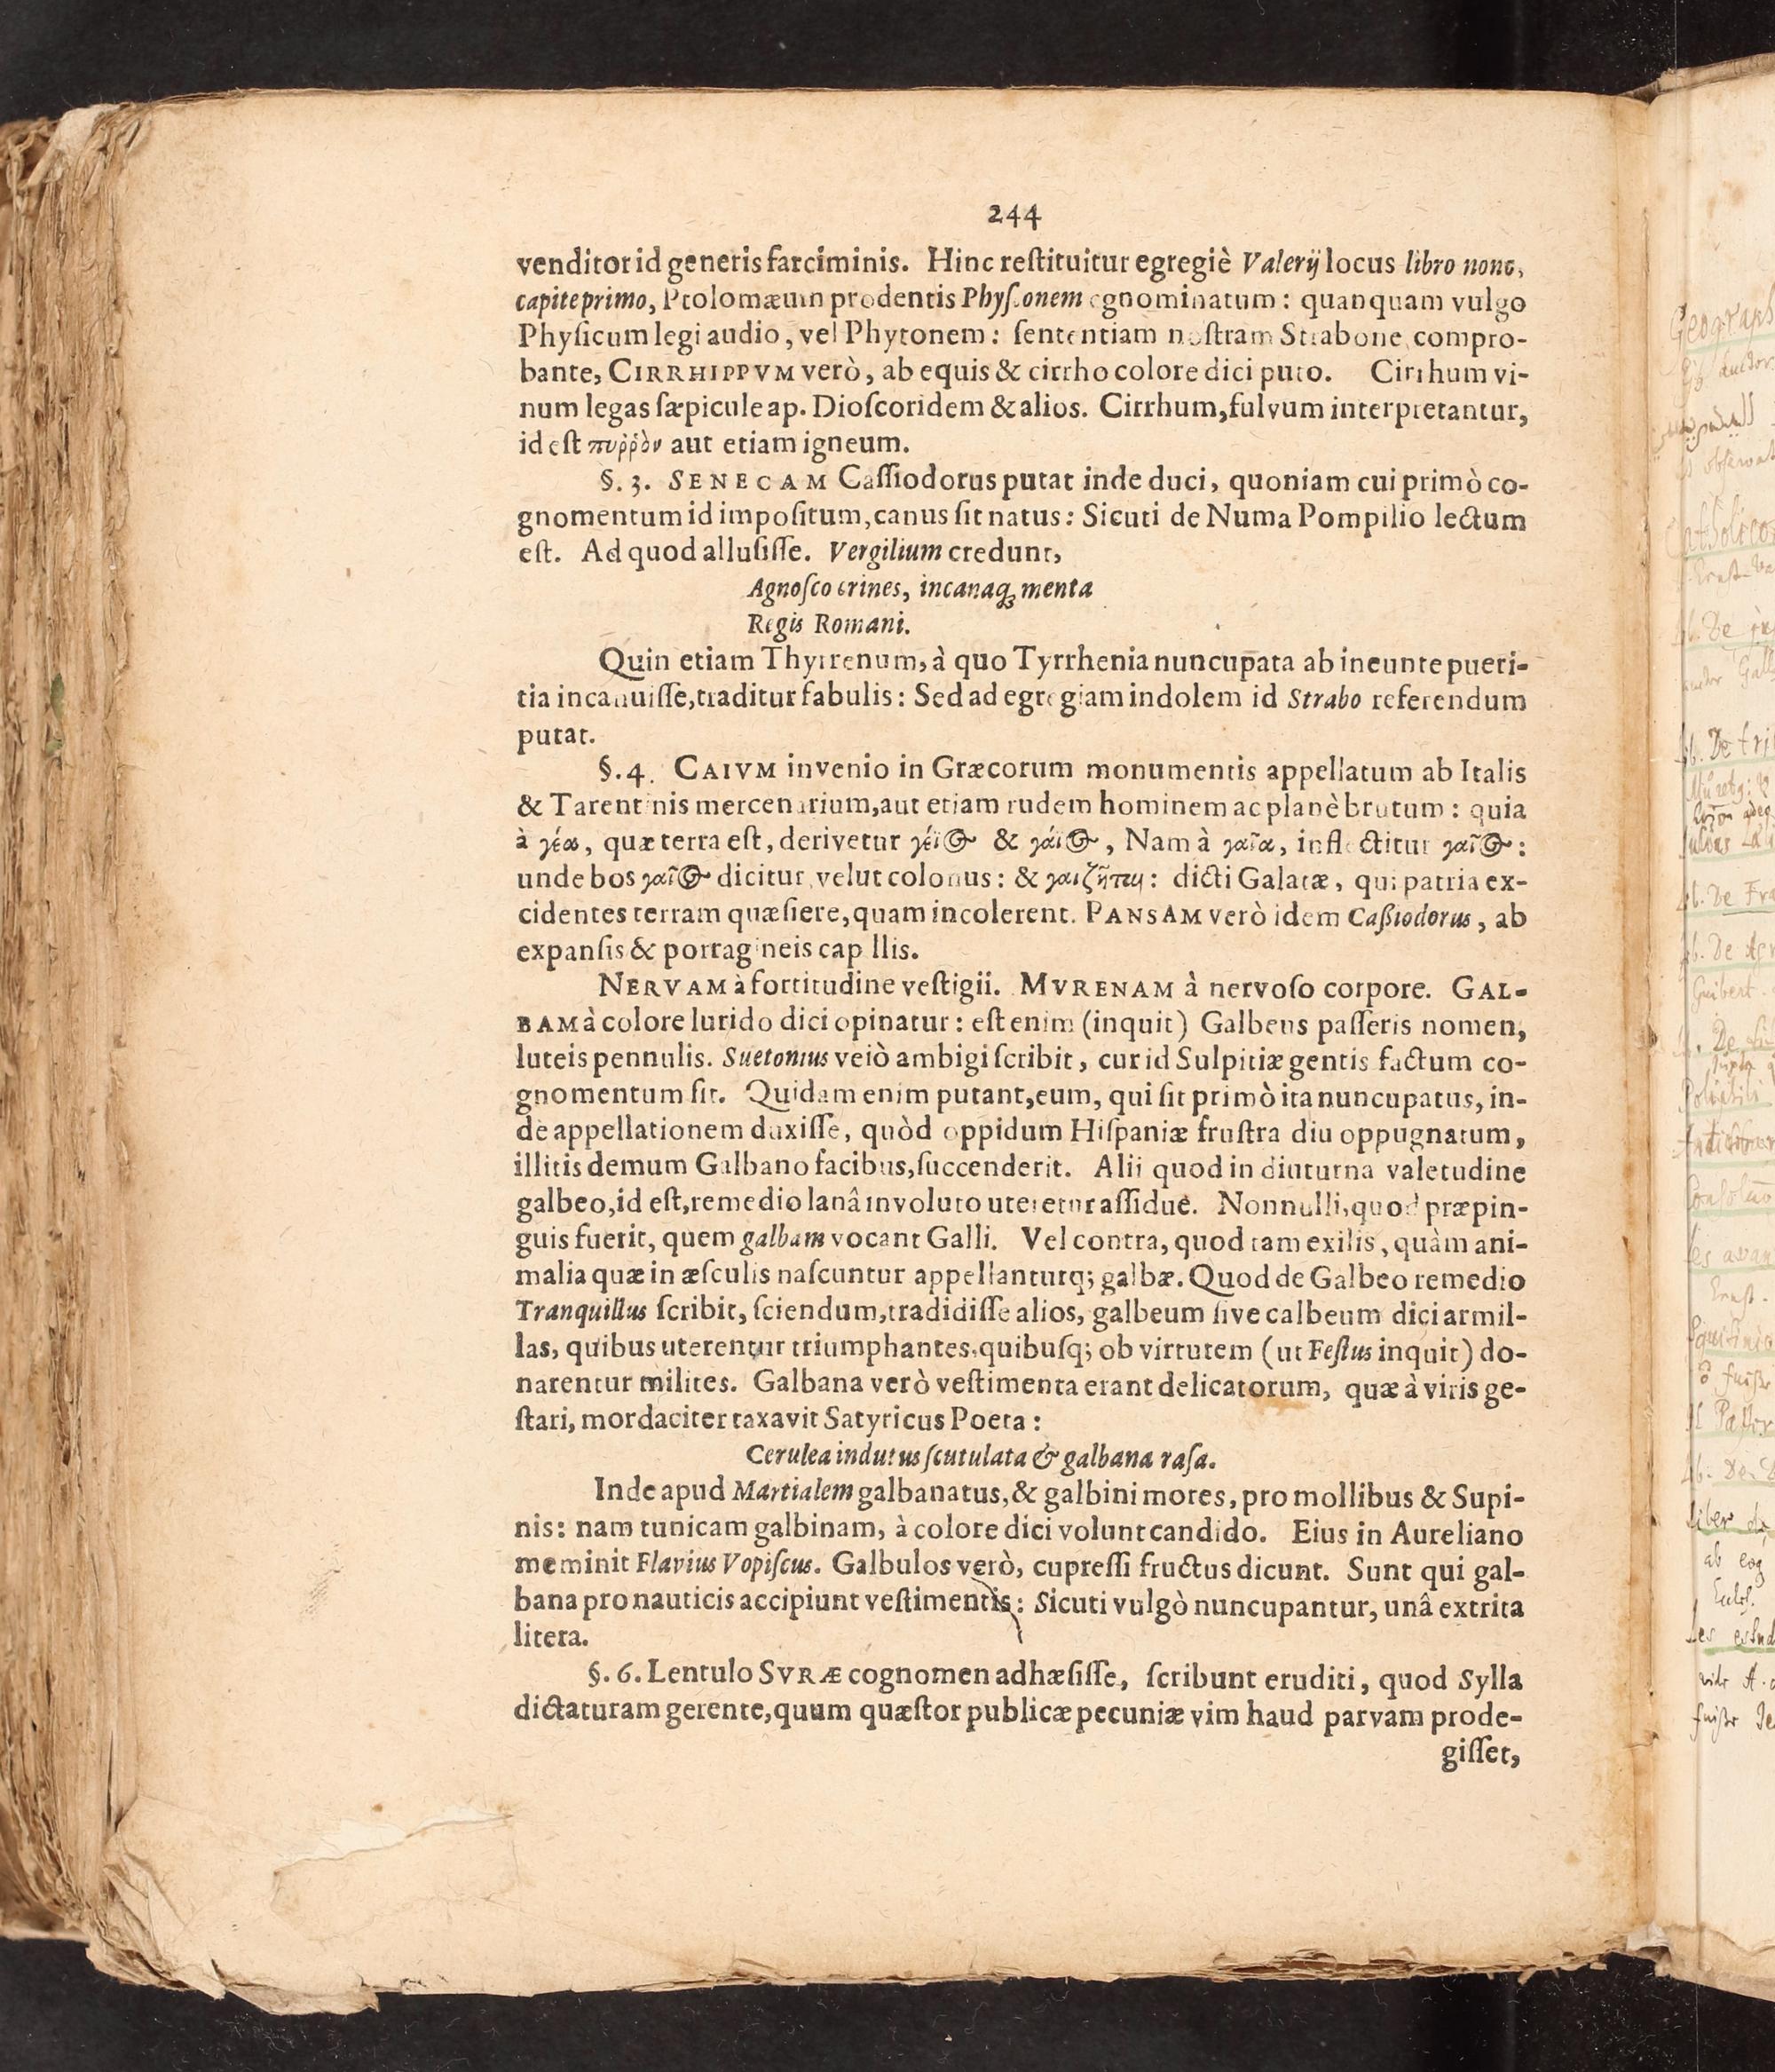 244
venditor id generis farciminis. Hinc reſtituitur egregiè Valerij locus libro nono,
capite primo, Ptolomæum prodentis Phyſconem cgnominatum: quanquam vulgo
Phyſicum legi audio, vel Phytonem: ſententiam noſtram Strabone compro-
bante, CIRRHIPPVM verò, ab equis & cirrho colore dici puto. Cirrhum vi-
num legas ſæpicule ap. Dioſcoridem & alios. Cirrhum, fulvum interpretantur,
id eſt πυῤῥὸν aut etiam igneum.
§. 3. SENECAM Caſſiodorus putat inde duci, quoniam cui primò co-
gnomentum id impoſitum, canus ſit natus: Sicuti de Numa Pompilio lectum
eſt. Ad quod alluſiſſe. Vergilium credunt,
Agnoſco crines, incanaq; menta
Regis Romani.
Quin etiam Thyrrenum, à quo Tyrrhenia nuncupata ab ineunte pueri-
tia incanuiſſe, traditur fabulis: Sed ad egregiam indolem id Strabo referendum
putat.
§. 4. CAIVM invenio in Græcorum monumentis appellatum ab Italis
& Tarentinis mercenarium, aut etiam rudem hominem ac planè brutum: quia
à γέα, quæ terra eſt, derivetur γέϊος & γάιος, Nam à γαῖα, inflectitur γαῖος:
unde bos γαῖος dicitur, velut colonus: & γαιζῆται: dicti Galatæ, qui patria ex-
cidentes terram quæſiere, quam incolerent. PANSAM verò idem Caßiodorus, ab
expanſis & porragineis capllis.
NERVAM à fortitudine veſtigii. MVRENAM à nervoſo corpore. GAL-
BAM à colore lurido dici opinatur: eſt enim (inquit) Galbeus paſſeris nomen,
luteis pennulis. Suetonius verò ambigi ſcribit, cur id Sulpitiæ gentis factum co-
gnomentum ſit. Quidam enim putant, eum, qui ſit primò ita nuncupatus, in-
de appellationem duxiſſe, quòd oppidum Hiſpaniæ fruſtra diu oppugnatum,
illitis demum Galbano facibus, ſuccenderit. Alii quod in diuturna valetudine
galbeo, id eſt, remedio lanâ involuto uteretur aſſiduè. Nonnulli, quod præpin-
guis fuerit, quem galbam vocant Galli. Vel contra, quod tam exilis, quàm ani-
malia quæ in æſculis naſcuntur appellanturq; galbæ. Quod de Galbeo remedio
Tranquillus ſcribit, ſciendum, tradidiſſe alios, galbeum ſive calbeum dici armil-
las, quibus uterentur triumphantes, quibuſq; ob virtutem (ut Feſtus inquit) do-
narentur milites. Galbana verò veſtimenta erant delicatorum, quæ à viris ge-
ſtari, mordaciter taxavit Satyricus Poeta:
Cerulea indutus ſcutulata & galbana raſa.
Inde apud Martialem galbanatus, & galbini mores, pro mollibus & Supi-
nis: nam tunicam galbinam, à colore dici volunt candido. Eius in Aureliano
meminit Flavius Vopiſcus. Galbulos verò, cupreſſi fructus dicunt. Sunt qui gal-
bana pro nauticis accipiunt veſtimentis: Sicuti vulgò nuncupantur, unâ extrita
litera.
§. 6. Lentulo SVRÆ cognomen adhæſiſſe, ſcribunt eruditi, quod Sylla
dictaturam gerente, quum quæſtor publicæ pecuniæ vim haud parvam prode-
giſſet,